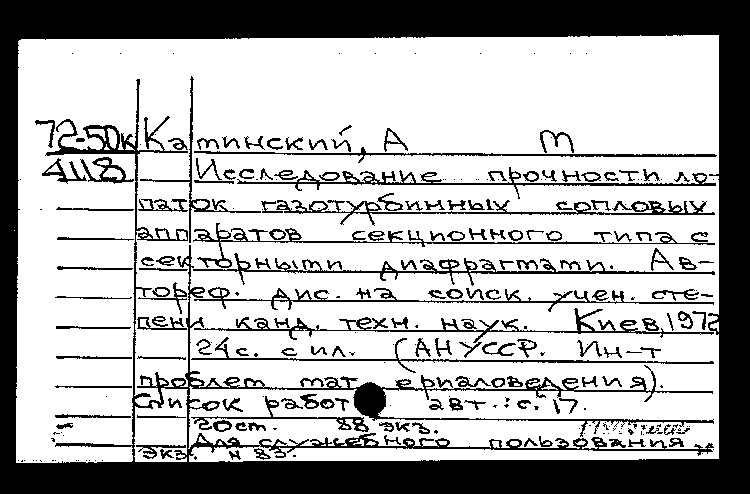 72-50к Каминский, А М
4118 Исследование прочности ло-
паток газотурбинных сопловых
аппаратов секционного типа с
секторными диафрагмами. Ав-
тореф. дис. на соиск. учен. сте-
пени канд. техн. наук. Киев, 1972
24 с. с ил. (АН УССР. Ин-т
проблем материаловедения).
Список работ авт.: с. 17.
20 ст. 88 экз.
Для служебного пользования
экз. н 83.